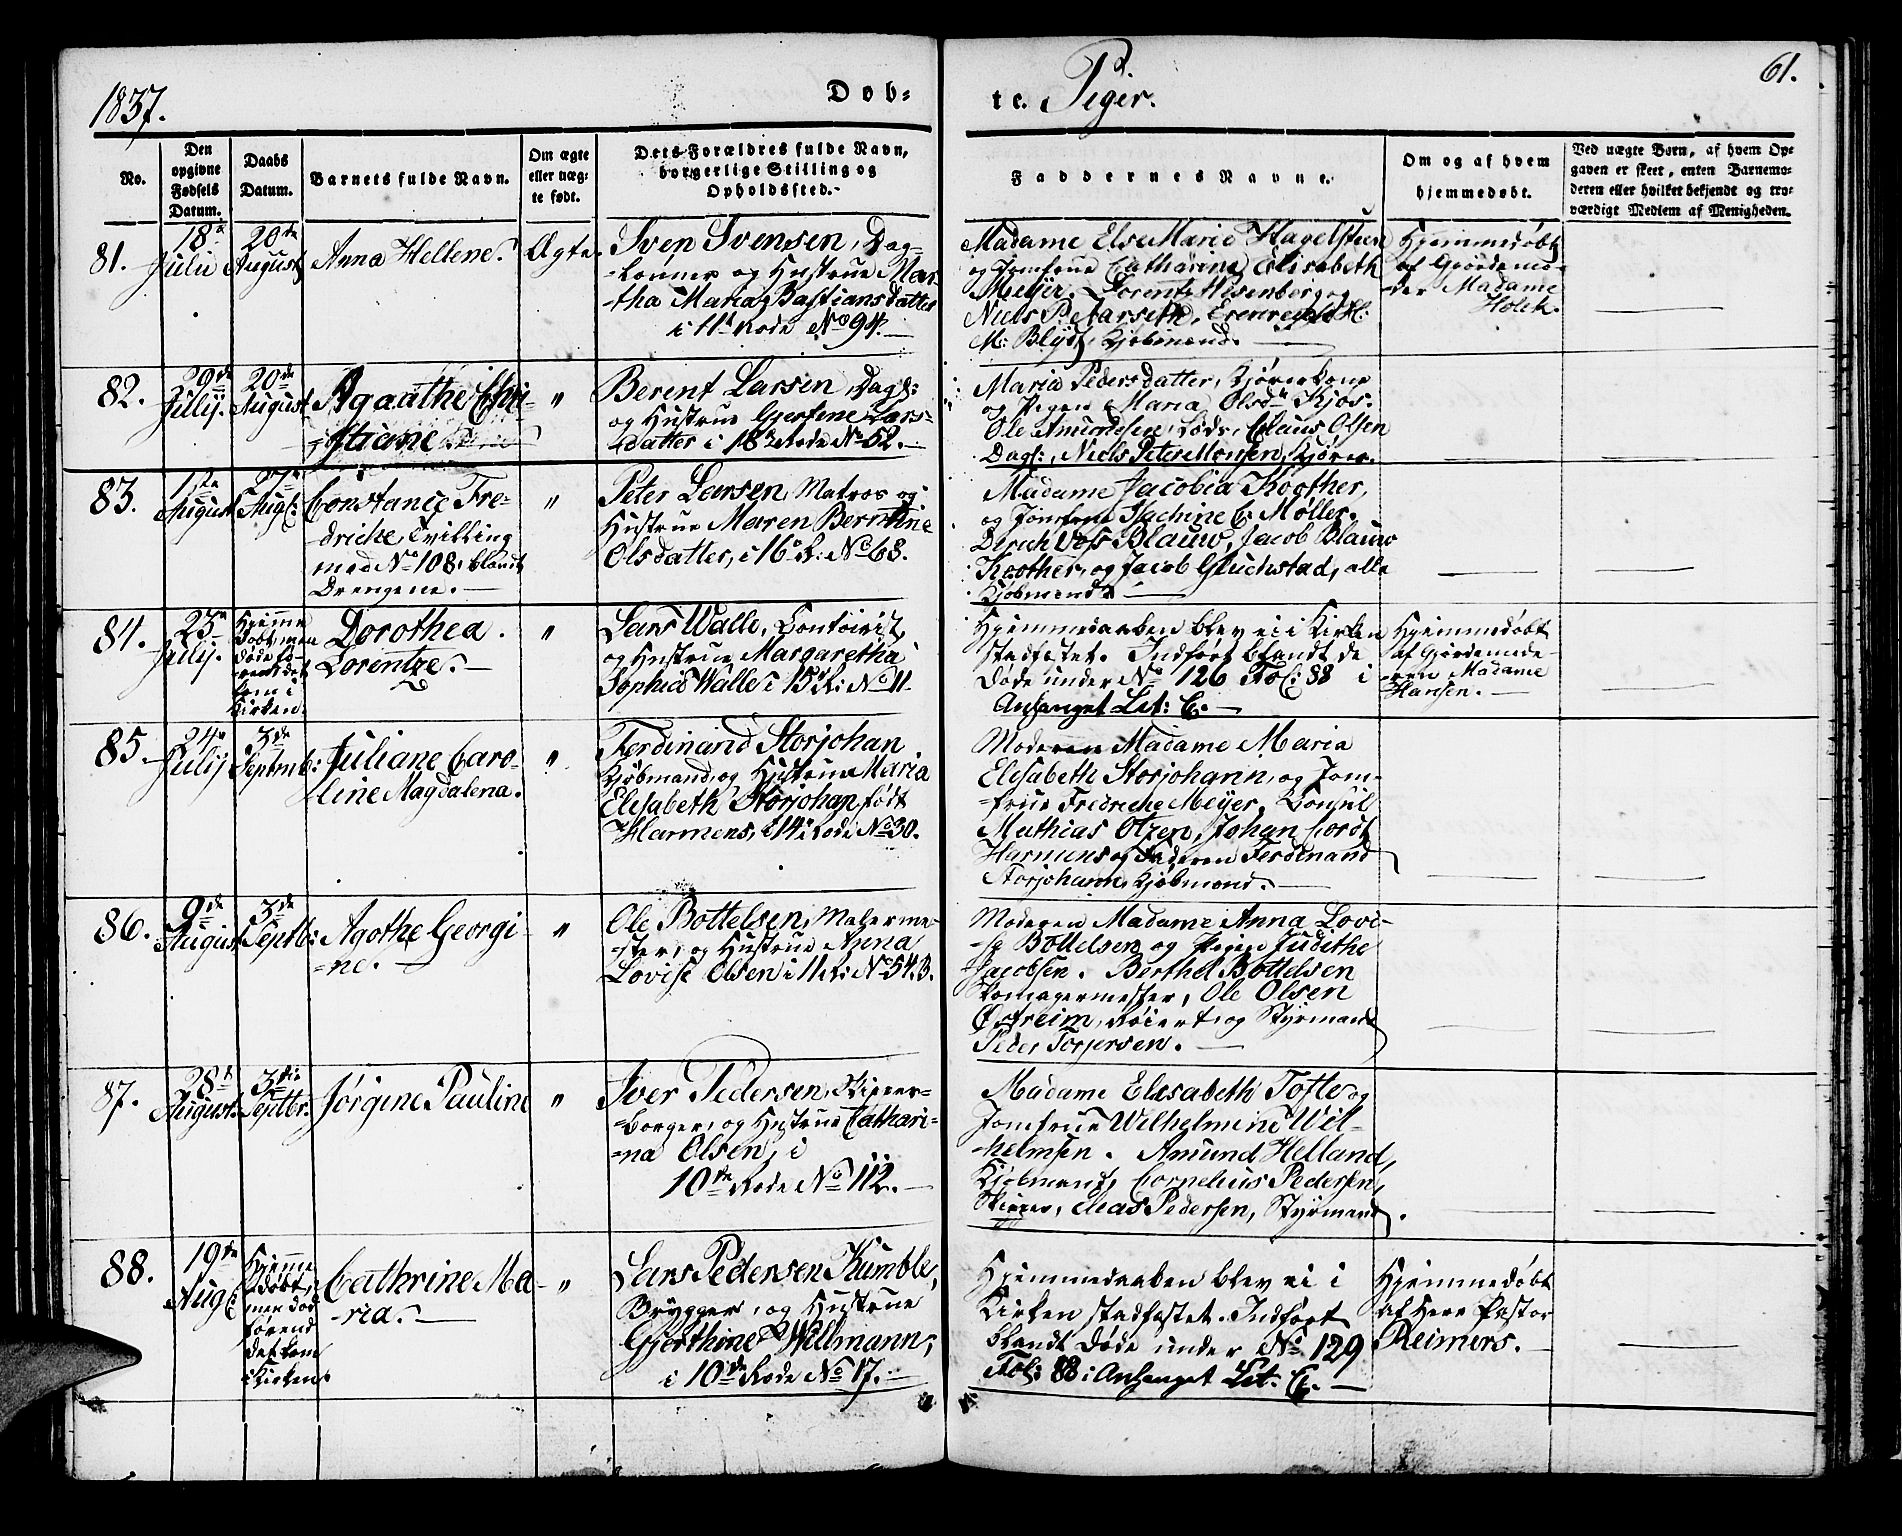 1837.
Døb-
te. Piger.
61.
No.
Den
opgivne
Fødsels
Datum.
Daabs
Datum.
Barnets fulde Navn.
Om ægte
eller uæg-
te født.
Dets Forældres fulde Navn,
borgerlige Stilling og
Opholdssted.
Faddernes Navne.
Om og af hvem
hjemmedøbt.
Ved uægte Børn, af hvem Op-
gaven er skeet, enten Barnemo-
deren eller hvilket bekjendt og tro-
værdigt Medlem af Menigheden.
81.
18de
July
20de
August
Anna Hellene.
Ægte.
Sven Svensen, Dag-
-lønner og Hustrue Mar-
-tha Maria Bastiansdatter
i 11te Rode No 94.
Madame Else Marie Hagelsteen
og Jomfrue Catharina Elisabeth
Meijer. Lorentz Wesenberg og
Niels Petersen,
M: Blydt, Kjøbmænd.
Hjemmedøbt
af Gjordemo-
-der Madame
Holck.
82.
29de
Julij.
20de
August
Agaathe Chri-
-stiane
"
Berent Larsen, Dagl:
og Hustrue Gjertine Lars-
-datter i 18de Rode No 52.
Maria Pedersdatter,
og Pigen Maria Olsdr Kjos.
Ole Amundsen, Lods, Claus Olsen
Dagl:, Niels Peter Monsen,
83.
12te
August
27de
Augl:
Constance Fre-
-driche, Tvilling
med No 108, blandt
Drengene.
"
Peter Larsen, Matros og
Hustrue Maren Berntine
Olsdatter, i 16de R: No 68.
Madame Jacobia Koother,
og Jomfrue Hachine C. Møller.
Dirich Vos Blauw, Jacob Blauw
Koother, og Jacob Gluchstad, alle
Kjøbmænd.
84.
25de
Julij.
Hjemme
døbt, men
døde fo-
-rend det
kom i
Kirken.
Dorothea
Lorentze.
"
Lars Walle, Contoirist,
og Hustrue Margaretha
Sophie Walle i 15de R: No 11.
Hjemmedaaben blev ei i Kirken
stadfæstet. Indført blandt de
Døde under No 126 Fol: 88 i
Anhanget Lit: C.
Hjemmedøbt
af Gjordemode-
-ren Madame
Hansen.
85.
24de
Julij
3de
Septemb:
Juliane Caro-
-line Magdalena.
"
Ferdinand Storjohan
Kjøbmand, og Hustrue Maria
Elisabeth Storjohan, født
Harmens, i 14de Rode No 30.
Moderen Madame Maria
Elisabeth Storjohann, og Jom-
-frue Fredriche Meyer. Consul
Mathias Otzen, Johan Cordt
Harmens og Faderen Ferdinand
Storjohann, Kjøbmænd.
86.
9de
August
3de
Septb:
Agothe Georgi-
-ne.
"
Ole Bottelsen, Malerme-
-ster, og Hustrue Anna
Lovise Olsen i 11te R: No 54.B.
Moderen Madame Anna Lovi-
-se Bottelsen og Pigen Judithe
Jacobsen. Berthel Bottelsen
Skomagermester, Ole Olsen
Østreim, og Styrmand
Peder Torjersen.
87.
28de
August.
3die
Septbr:
Jørgine Pauline
"
Iver Pedersen, Skipper-
-borger, og Hustrue Cathari-
-na Olsen, i
10de Rode No 112.
Madame Elisabeth Tofte og
Jomfrue Wilhelmine Wil-
-helmsen. Amund Helland,
Kjøbmand, Cornelius Pedersen,
Skipper, Elias Pedersen, Styrmand.
88.
19de
Augl:
Hjemme
døbt,
men død
førend
det kom
i Kirken.
Cathrine Ma-
-ria.
"
Lars Pedersen Kumble,
Brygger, og Hustrue
Gjerthine Wellmann,
i 10de Rode No 17.
Hjemmedaaben blev ei i
Kirken stadfæstet. Indført
blandt Døde under No 129
Fol: 88 i Anhanget Lit: C.
Hjemmedøbt
af Herr Pastor
Reimers.